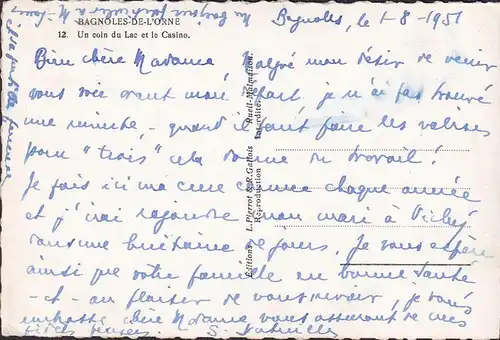 BAGNOLES-DE-L'ORNE
12. Un coin du Lac et le Casino.
Bagnoles, le 1-8-1951
Bien chère Madame, Malgré mon désir de venir
vous voir avant mon départ, je n'ai pas trouvé
une minute - quand il faut faire les valises
pour "trois" cela donne du travail !
Je fais ici ma cure comme chaque année
et j'irai rejoindre mon mari à Vichy
dans une huitaine de jours. Je vous espère
ainsi que votre famille en bonne santé
- et - au plaisir de vous revoir, je vous
embrasse chère Madame vous assurant de mes
fidèles pensées. S.
Editions L. Pierrot & R. Gallois Rueil-Malmaison
Reproduction Interdite